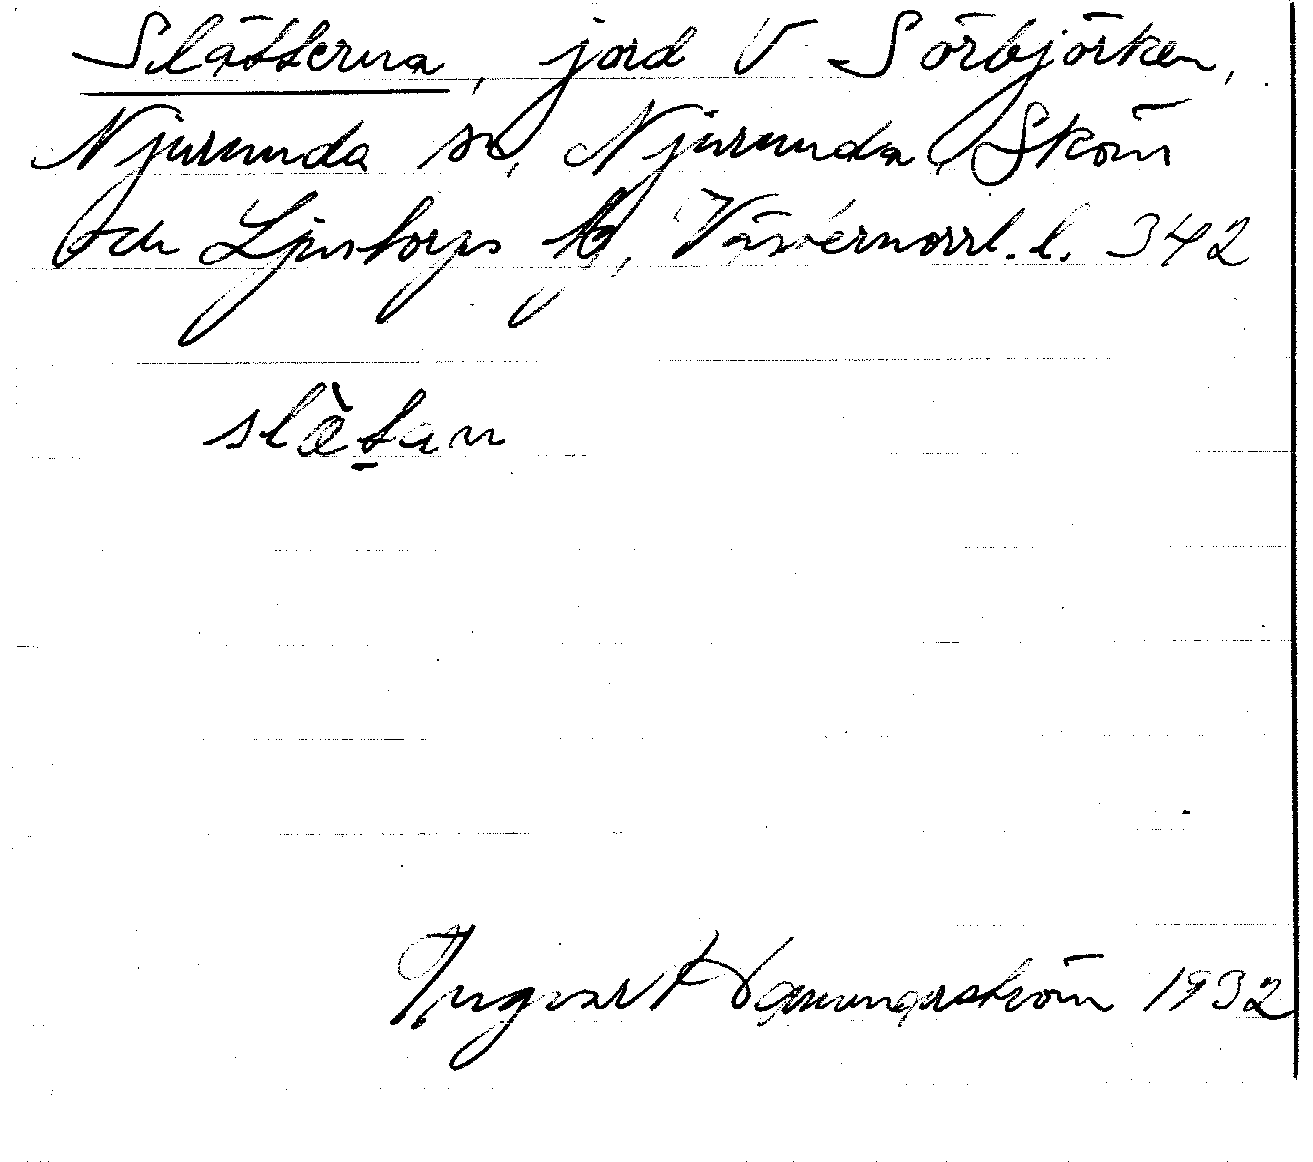 Slåtterna, jord V Sörbjörken,
Njurunda sn, Njurunda, Sköns
och Ljustorps tg, Västernorrl. l. 342
slæ̀t̠an
Ingvar Hammarström 1932